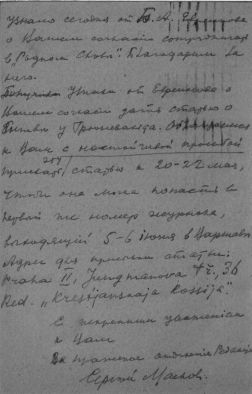 Узнано сегодня от Б. А.
о Вашем согласии сотрудничать
в „Родном Слове". Благодарим Вас
него.
Узнал от Евреинова о
Вашем согласии дать статью о
битве у
к Вам с настойчивой просьбой
прислать эту статью к 20-22 мая,
чтобы она могла попасть в
первый же номер журнала,
выходящий 5-6 июня в Варшаве
Адрес для присылки статьи:
Praha II, Jungmanova tř., 36
Red. „Krestjanskaja Rossija".
С искренним уважением
к Вам
За пражское отделение Редакции
Сергей Маслов.